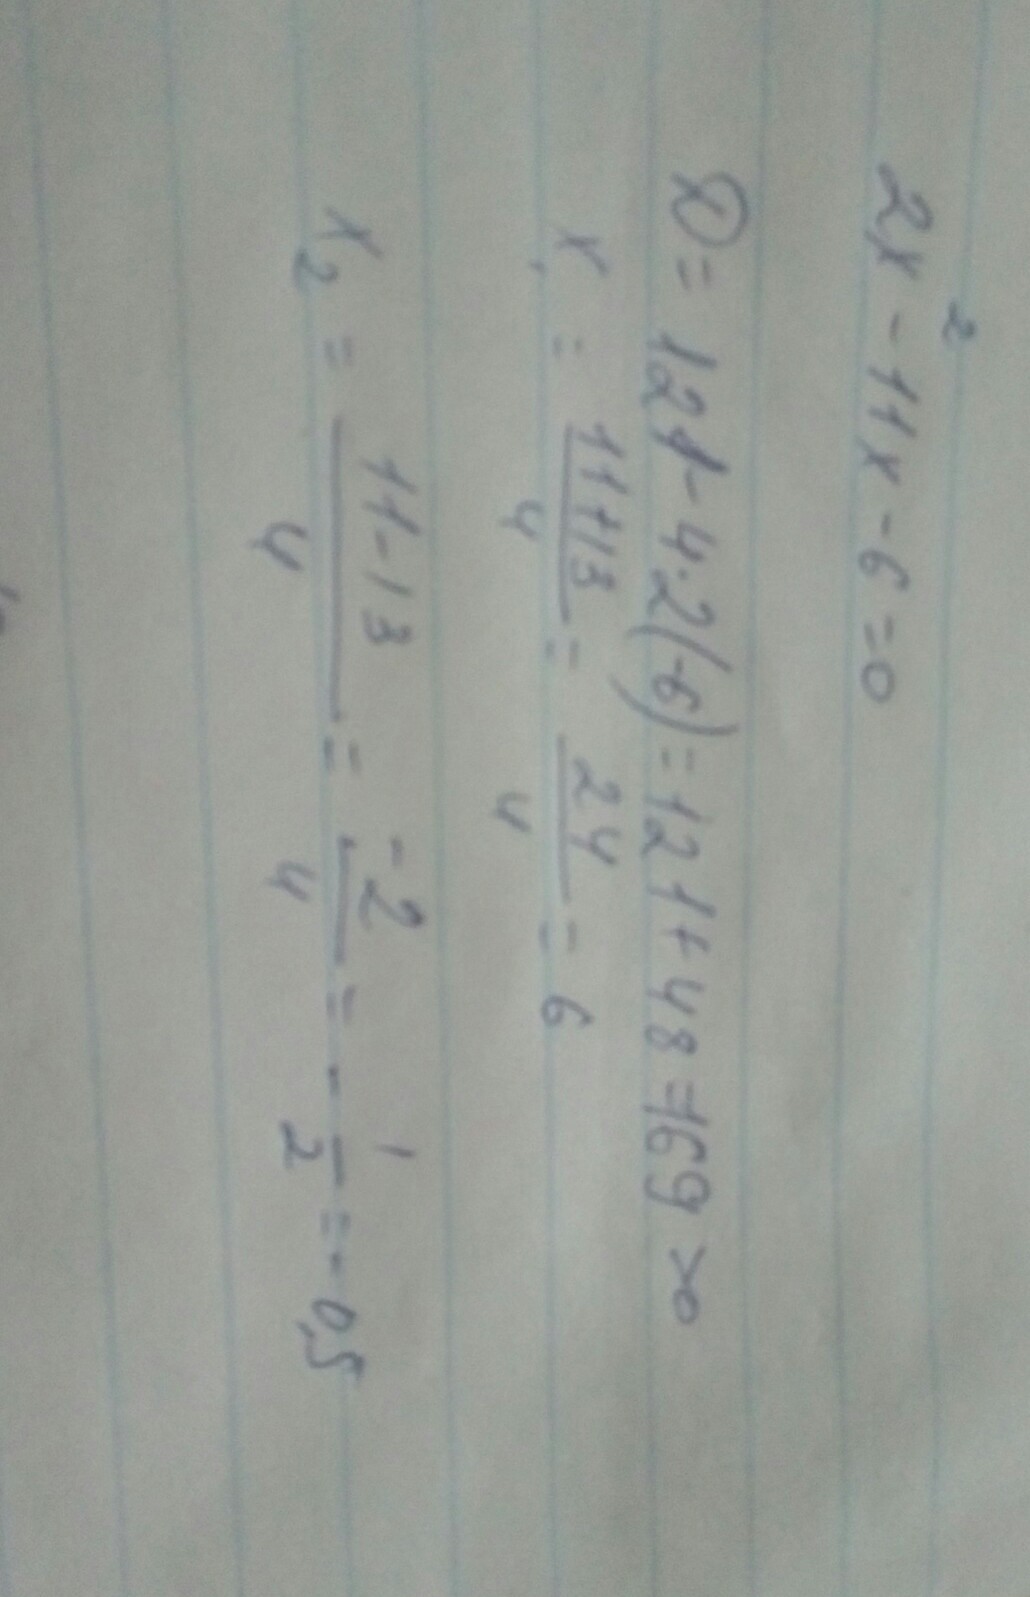 2x² - 11x - 6 = 0
D = 121 - 4·2(-6) = 121 + 48 = 169 > 0
x₁ = 11+13/4 = 24/4 = 6
x₂ = 11-13/4 = -2/4 = - 1/2 = - 0,5